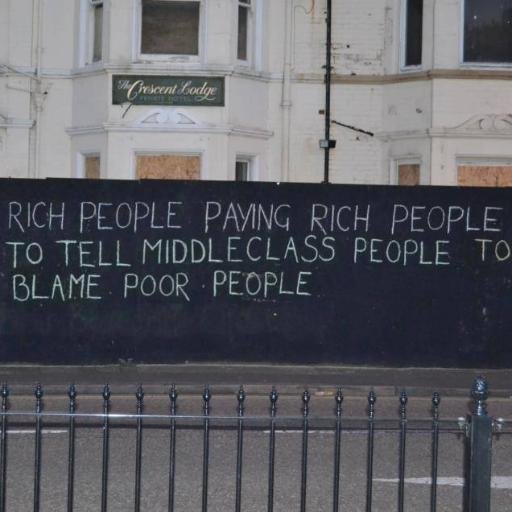 The Crescent Lodge
PRIVATE HOTEL
RICH PEOPLE PAYING RICH PEOPLE
TO TELL MIDDLECLASS PEOPLE TO
BLAME POOR PEOPLE